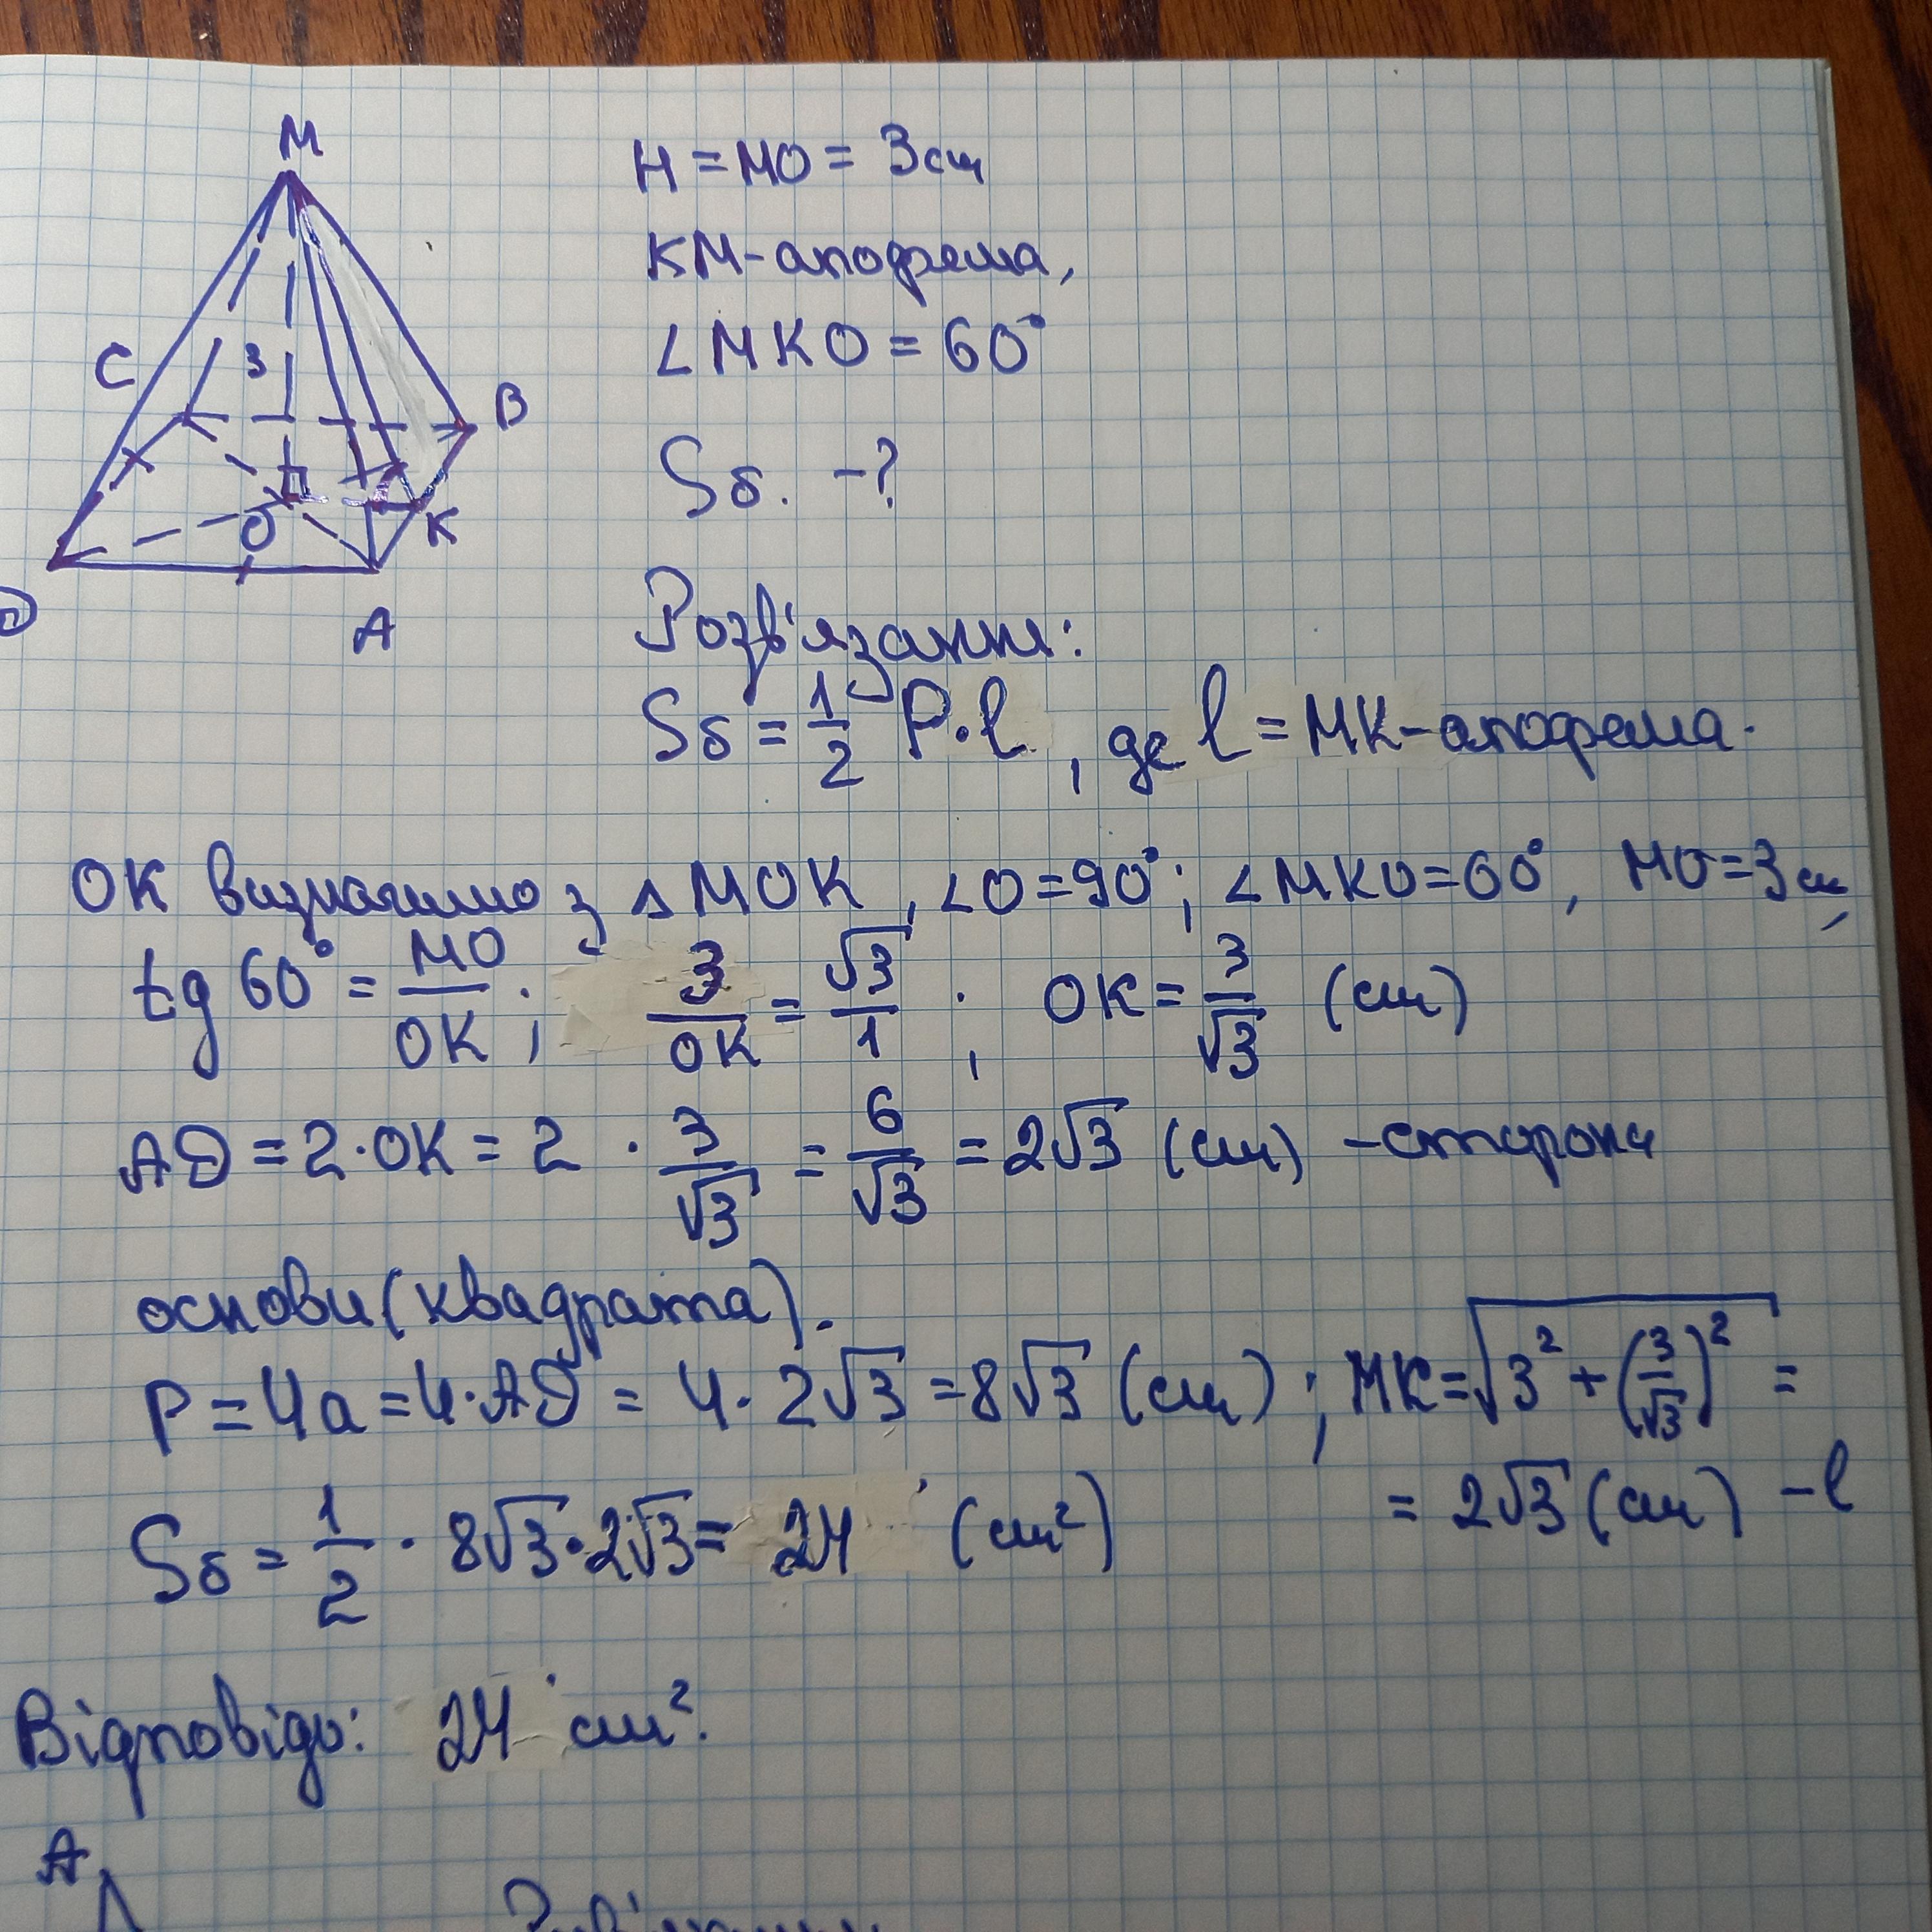 M
H = MO = 3см
KM-апофема,
∠MKO = 60°
C
3
B
Sб. -?
O
K
D
A
Розв'язання:
Sб = 1/2 P·l, де l = MK-апофема.
OK визначимо з △MOK, ∠O=90°; ∠MKO=60°, MO=3см,
tg 60° = MO/OK; 3/OK = √3/1; OK = 3/√3 (см)
AD = 2·OK = 2 · 3/√3 = 6/√3 = 2√3 (см) - сторона
основи (квадрата).
P = 4a = 4·AD = 4·2√3 = 8√3 (см); MK = √(3² + (3/√3)²) =
= 2√3 (см) - l
Sб = 1/2 · 8√3·2√3 = 24 (см²)
Відповідь: 24 см².
A
Розв'язання: